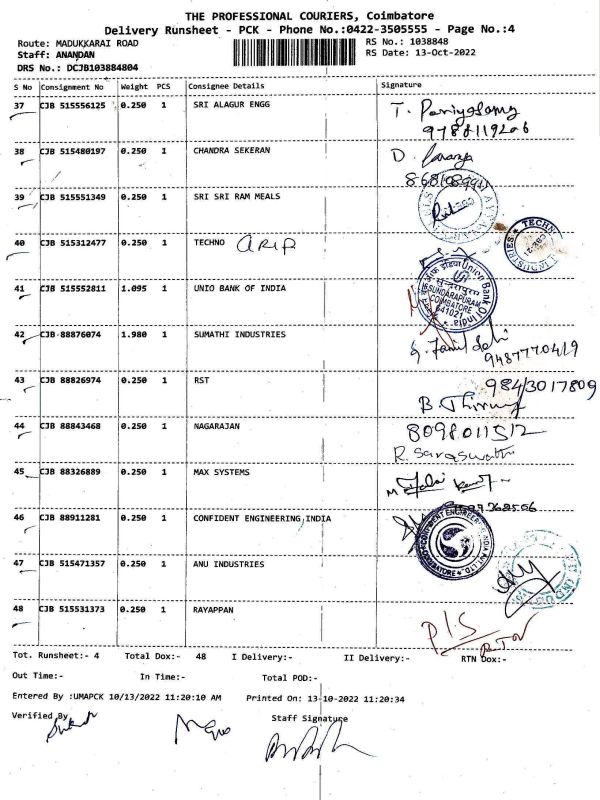 THE PROFESSIONAL COURIERS, Coimbatore
Delivery Runsheet - PCK - Phone No.:0422-3505555 - Page No.:4
Route: MADUKKARAI ROAD RS No.: 1038848
Staff: ANANDAN RS Date: 13-Oct-2022
DRS No.: DCJB103884804
S No Consignment No Weight PCS Consignee Details Signature
37 CJB 515556125 0.250 1 SRI ALAGUR ENGG T.
9788119206
38 CJB 515480197 0.250 1 CHANDRA SEKERAN D.
39 CJB 515551349 0.250 1 SRI SRI RAM MEALS
40 CJB 515312477 0.250 1 TECHNO
TECHN INDUSTRIES
41 CJB 515552811 1.095 1 UNIO BANK OF INDIA
Union Bank Of India
SUNDARAPURAM
COIMBATORE
641021
42 CJB 88876074 1.980 1 SUMATHI INDUSTRIES
9487770419
43 CJB 88826974 0.250 1 RST 9843017809
B.
44 CJB 88843468 0.250 1 NAGARAJAN 8098011512
R. Saraswathi
45 CJB 88326889 0.250 1 MAX SYSTEMS
46 CJB 88911281 0.250 1 CONFIDENT ENGINEERING INDIA
CONFIDENT ENGINEERING INDIA PVT. LTD.
COIMBATORE
47 CJB 515471357 0.250 1 ANU INDUSTRIES
48 CJB 515531373 0.250 1 RAYAPPAN
P/S
Tot. Runsheet:- 4 Total Dox:- 48 I Delivery:- II Delivery:- RTN Dox:-
Out Time:- In Time:- Total POD:-
Entered By :UMAPCK 10/13/2022 11:20:10 AM Printed On: 13-10-2022 11:20:34
Verified By Staff Signature